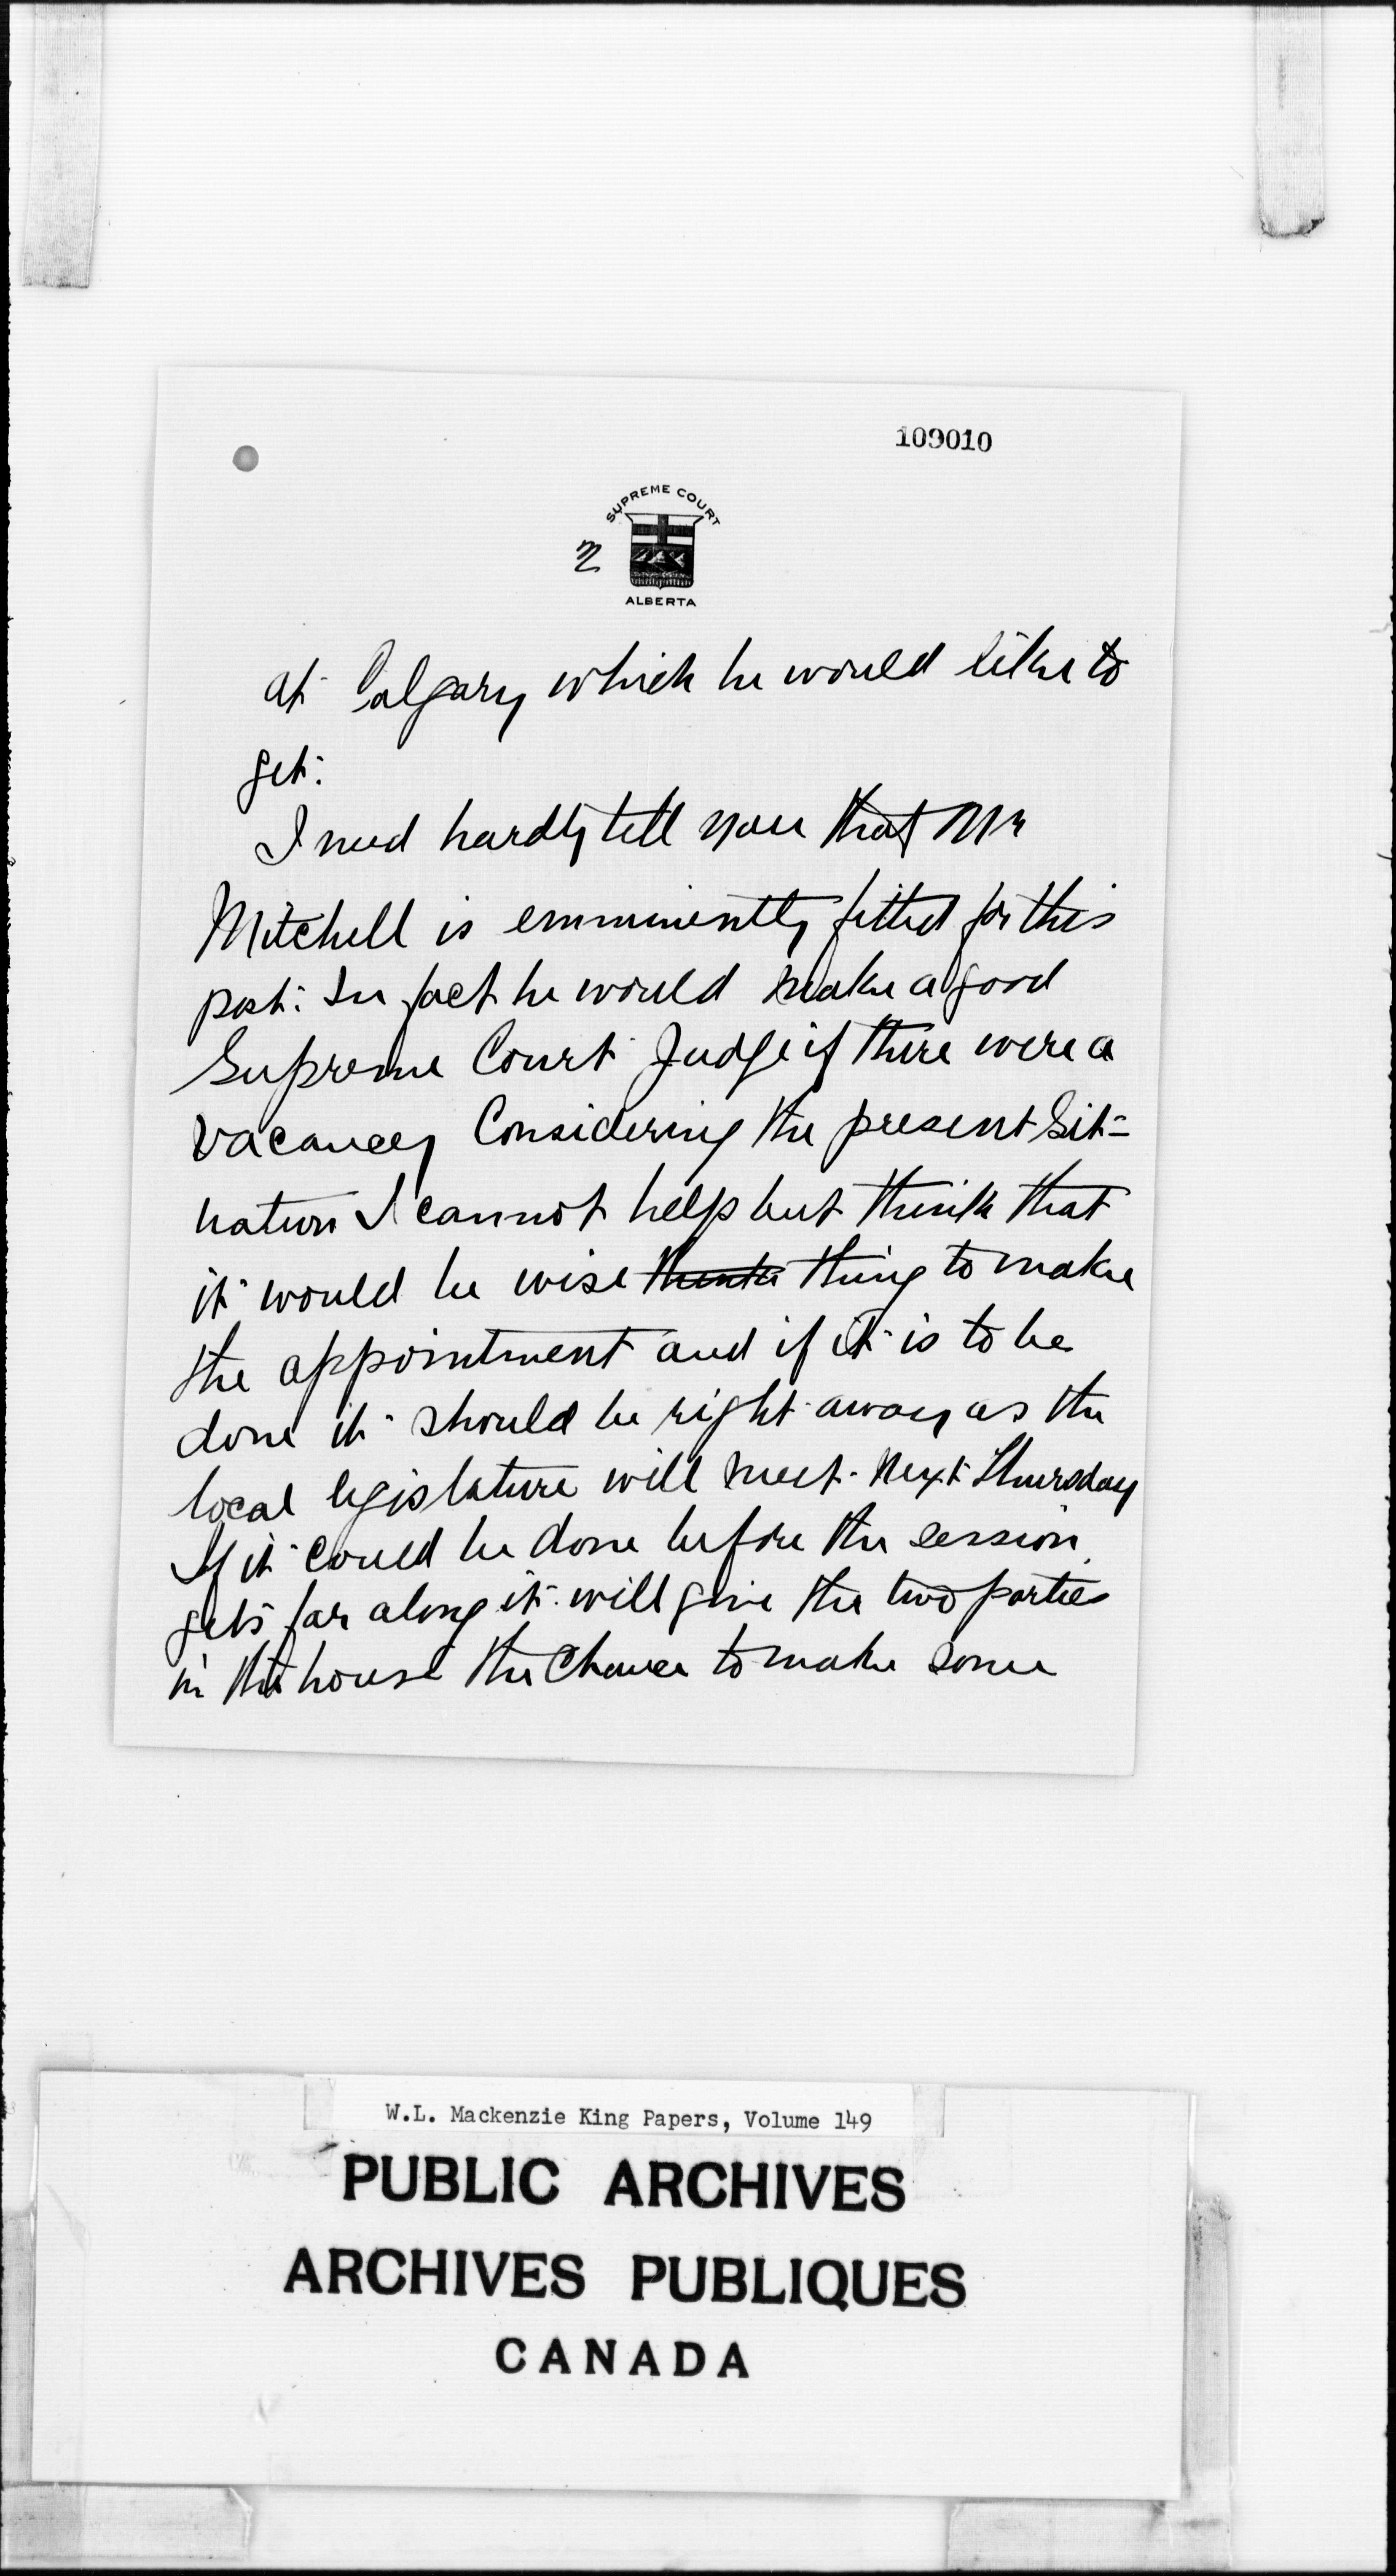 109010
SUPREME COURT
2
ALBERTA
at Calgary which he would like to
get.
I need hardly tell you that Mr
Mitchell is emminently fitted for this
post. In fact he would make a good
Supreme Court Judge if there were a
vacancy Considering the present Sit=
uation I cannot help but think that
it would be wise thing to make
the appointment and if it is to be
done it should be right away as the
local legislature will meet next Thursday
If it could be done before the session
gets far along it will give the two parties
in the house the chance to make some
W.L. Mackenzie King Papers, Volume 149
PUBLIC ARCHIVES
ARCHIVES PUBLIQUES
CANADA